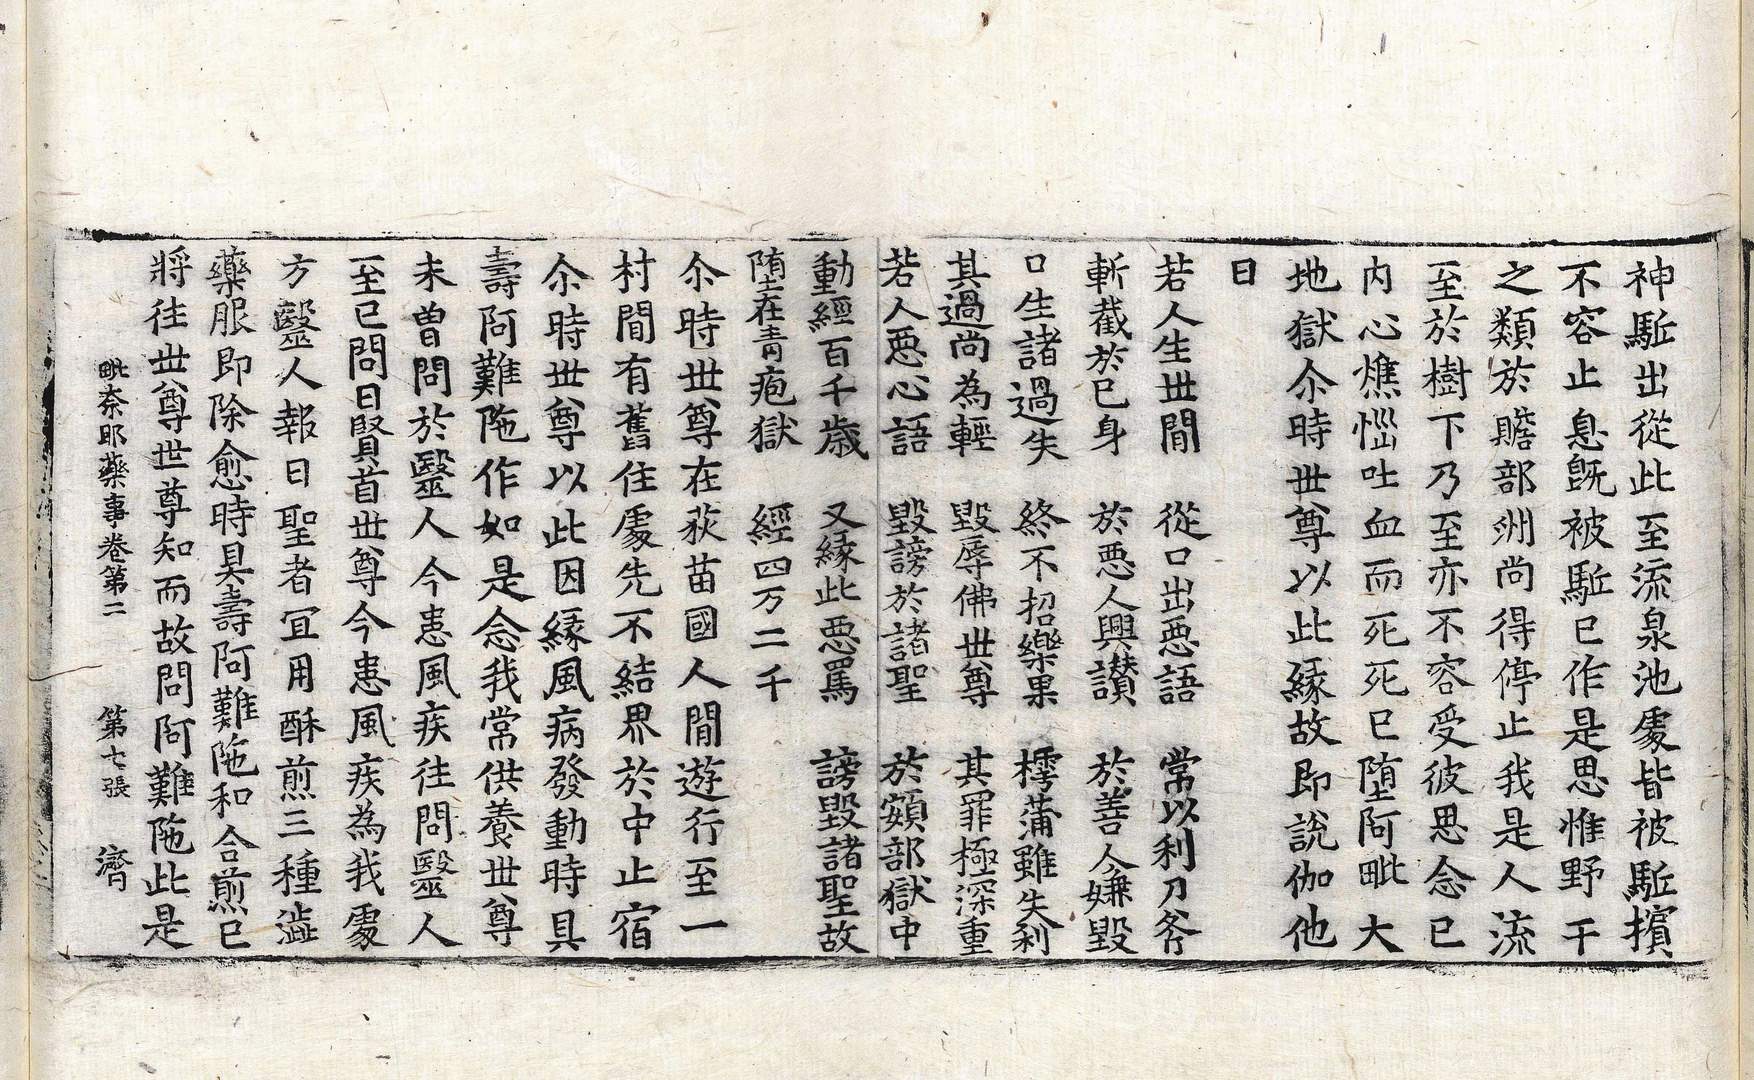 神駈出從此至流泉池處皆被駈擯
不容止息旣被駈已作是思惟野干
之類於贍部洲尚得停止我是人流
至於樹下乃至亦不容受彼思念已
内心燋惱吐血而死死已墮阿毗大
地獄尒時世尊以此縁故即說伽他
曰
若人生世間　從口出惡語　常以利刀斧
斬截於己身　於惡人興讃　於善人嫌毀
口生諸過失　終不招樂果　樗蒲雖失利
其過尚為輕　毀辱佛世尊　其罪極深重
若人惡心語　毀謗於諸聖　於頞部獄中
動經百千歳　又縁此惡罵　謗毀諸聖故
墮在青疱獄　經四万二千
尒時世尊在荻苗國人間遊行至一
村間有舊住處先不結界於中止宿
尒時世尊以此因縁風病發動時具
壽阿難陁作如是念我常供養世尊
未曽問於毉人今患風疾往問毉人
至已問曰賢首世尊今患風疾為我處
方毉人報曰聖者冝用酥煎三種澁
藥服即除愈時具壽阿難陁和合煎已
將往世尊世尊知而故問阿難陁此是
毗奈耶藥事卷第二　第七張　濟